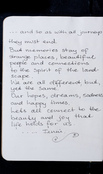 and so as with all journeys
they must end.
But memories stay of
strange places, beautiful
people and connections
to the Spirit of the land
scape
We are all different but,
yet the same.
Our hopes, dreams, sadness
and happy times.
Lets all connect to the
beauty and joy that
life holds for us